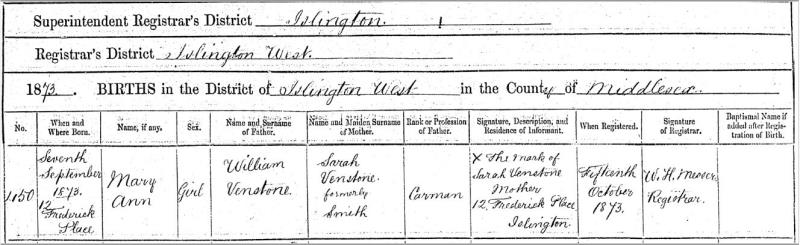 Superintendent Registrar's District Islington.
Registrar's District Islington West.
1873. BIRTHS in the District of Islington West in the County of Middlesex.
No. When and Where Born. Name, if any. Sex. Name and Surname of Father. Name and Maiden Surname of Mother. Rank or Profession of Father. Signature, Description, and Residence of Informant. When Registered. Signature of Registrar. Baptismal Name if added after Registration of Birth.
450
Seventh
September
1873.
12
Frederick
Place
Mary
Ann
Girl
William
Venstone.
Sarah
Venstone
formerly
Smith
Carman
X The mark of
Sarah Venstone
Mother
12. Frederick Place
Islington.
Fifteenth
October
1873.
W. H.
Registrar.